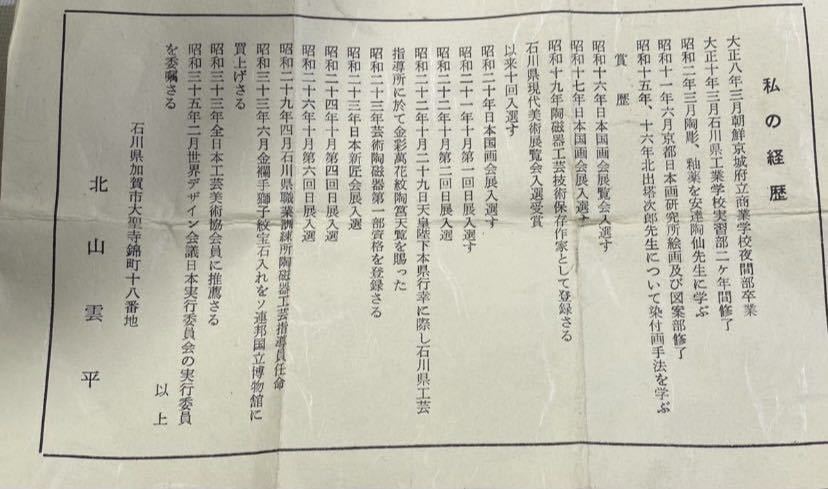 私の経歴
大正八年三月朝鮮京城府立商業学校夜間部卒業
大正十年三月石川県工業学校実習部二ケ年間修了
昭和二年三月陶彫、釉薬を安達陶仙先生に学ぶ
昭和十一年六月京都日本画研究所絵画及び図案部修了
昭和十五年、十六年北出塔次郎先生について染付画手法を学ぶ
賞歴
昭和十六年日本国画会展覧会入選す
昭和十七年日本国画会展入選す
昭和十九年陶磁器工芸技術保存作家として登録さる
石川県現代美術展覧会入選受賞
以来十回入選す
昭和二十年日本国画会展入選す
昭和二十一年十月第一回日展入選す
昭和二十二年十月第二回日展入選
昭和二十二年十月二十九日天皇陛下本県行幸に際し石川県工芸
指導所に於て金彩萬花紋陶筥天覧を賜った
昭和二十三年芸術陶磁器第一部資格を登録さる
昭和二十三年日本新匠会展入選
昭和二十四年十月第四回日展入選
昭和二十六年十月第六回日展入選
昭和二十九年四月石川県職業訓練所陶磁器工芸指導員任命
昭和三十三年六月金襴手獅子紋宝石入れをソ連邦国立博物館に
買上げさる
昭和三十三年全日本工芸美術協会員に推薦さる
昭和三十五年二月世界デザイン会議日本実行委員会の実行委員
を委嘱さる
以上
石川県加賀市大聖寺錦町十八番地
北山雲平